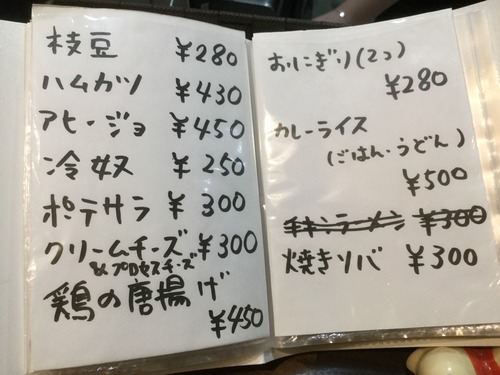 枝豆 ¥280
ハムカツ ¥430
アヒージョ ¥450
冷奴 ¥250
ポテサラ ¥300
クリームチーズ ¥300
&プロセスチーズ
鶏の唐揚げ
¥450
おにぎり(2コ)
¥280
カレーライス
(ごはん・うどん)
¥500
チキンラーメン ¥300
焼きソバ ¥300